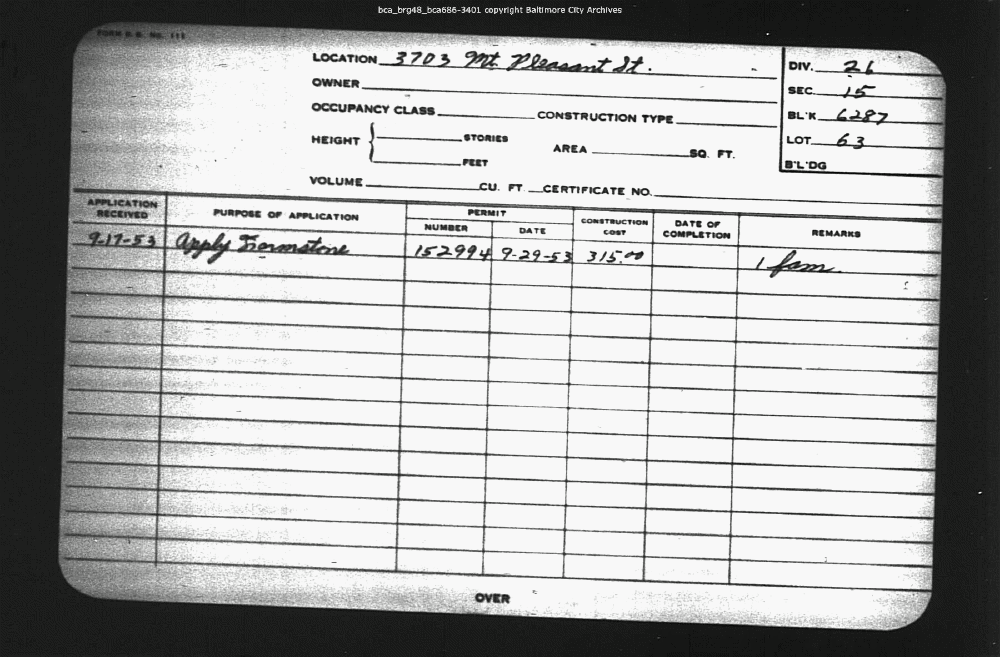 bca_brg48_bca686-3401 copyright Baltimore City Archives
FORM B.B. NO. 111
LOCATION 3703 Mt. Pleasant St.
DIV. 26
OWNER
SEC. 15
OCCUPANCY CLASS CONSTRUCTION TYPE
BL'K 6287
HEIGHT STORIES
FEET
AREA SQ. FT.
LOT 63
B'L'DG
VOLUME CU. FT. CERTIFICATE NO.
APPLICATION RECEIVED PURPOSE OF APPLICATION PERMIT NUMBER DATE CONSTRUCTION COST DATE OF COMPLETION REMARKS
9-17-53 Apply Formstone 152994 9-29-53 315.00 1 fam.
OVER